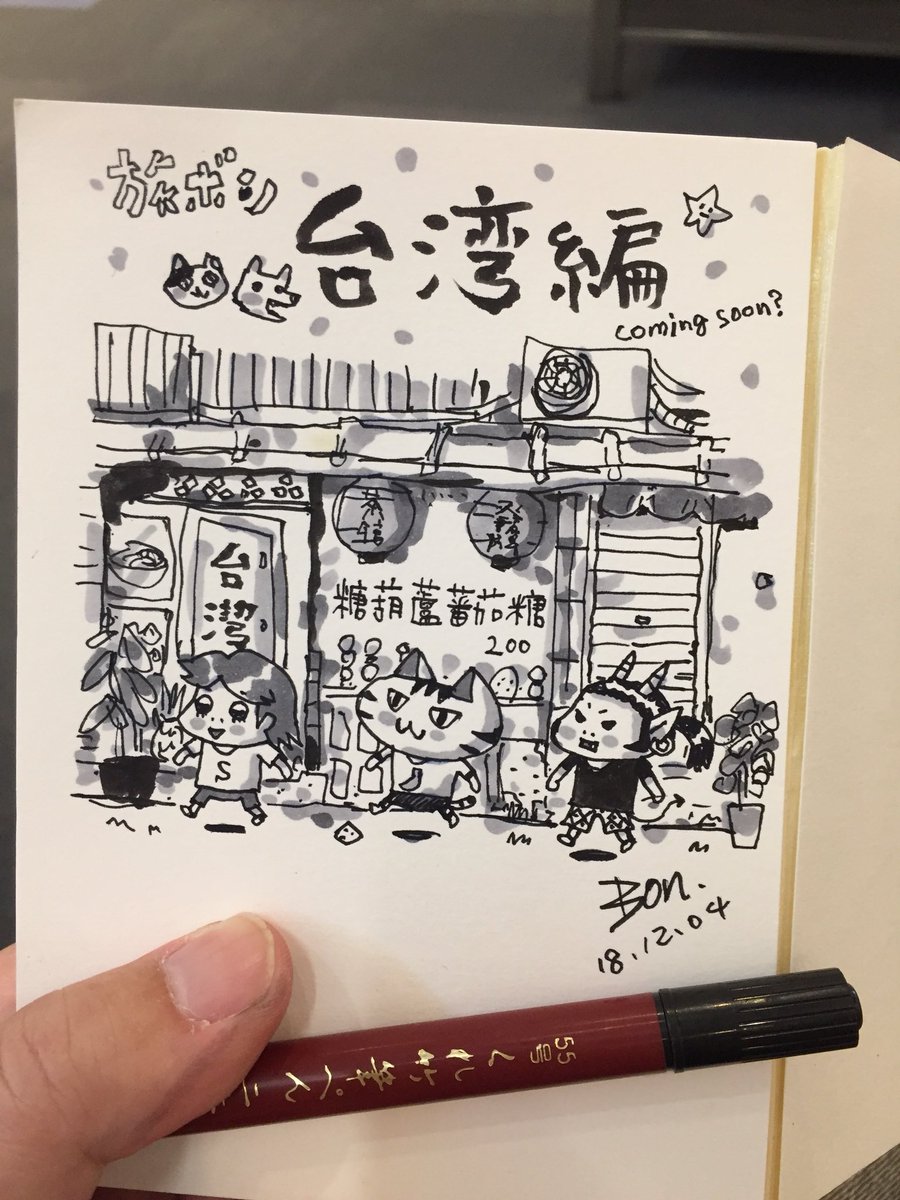 旅ボン
台湾編
coming soon?
台湾
糖葫蘆蕃茄糖
200
S
Bon.
18.12.04
55号 くれ竹筆ぺん 二